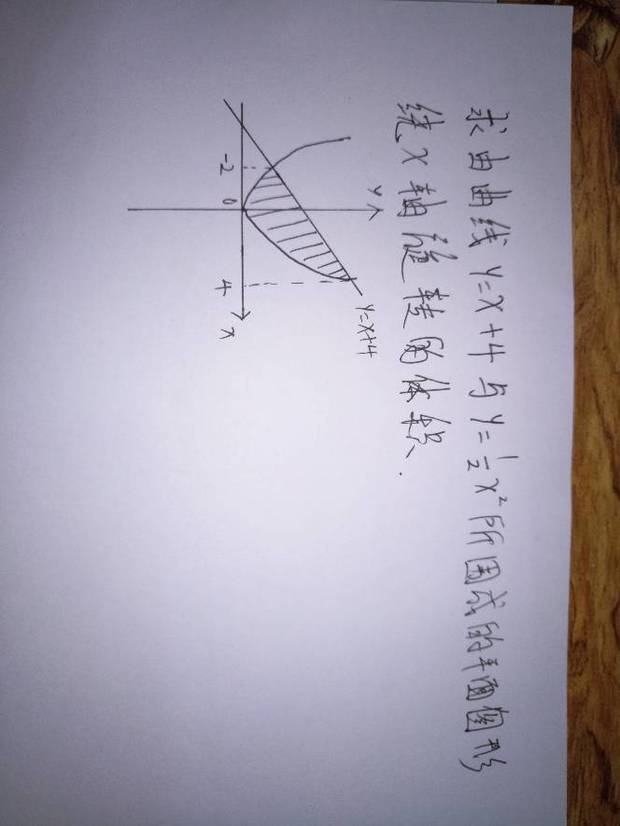 求由曲线y=x+4与y=½x²所围成的平面图形
绕x轴旋转的体积.
y
y=x+4
-2
0
4
x